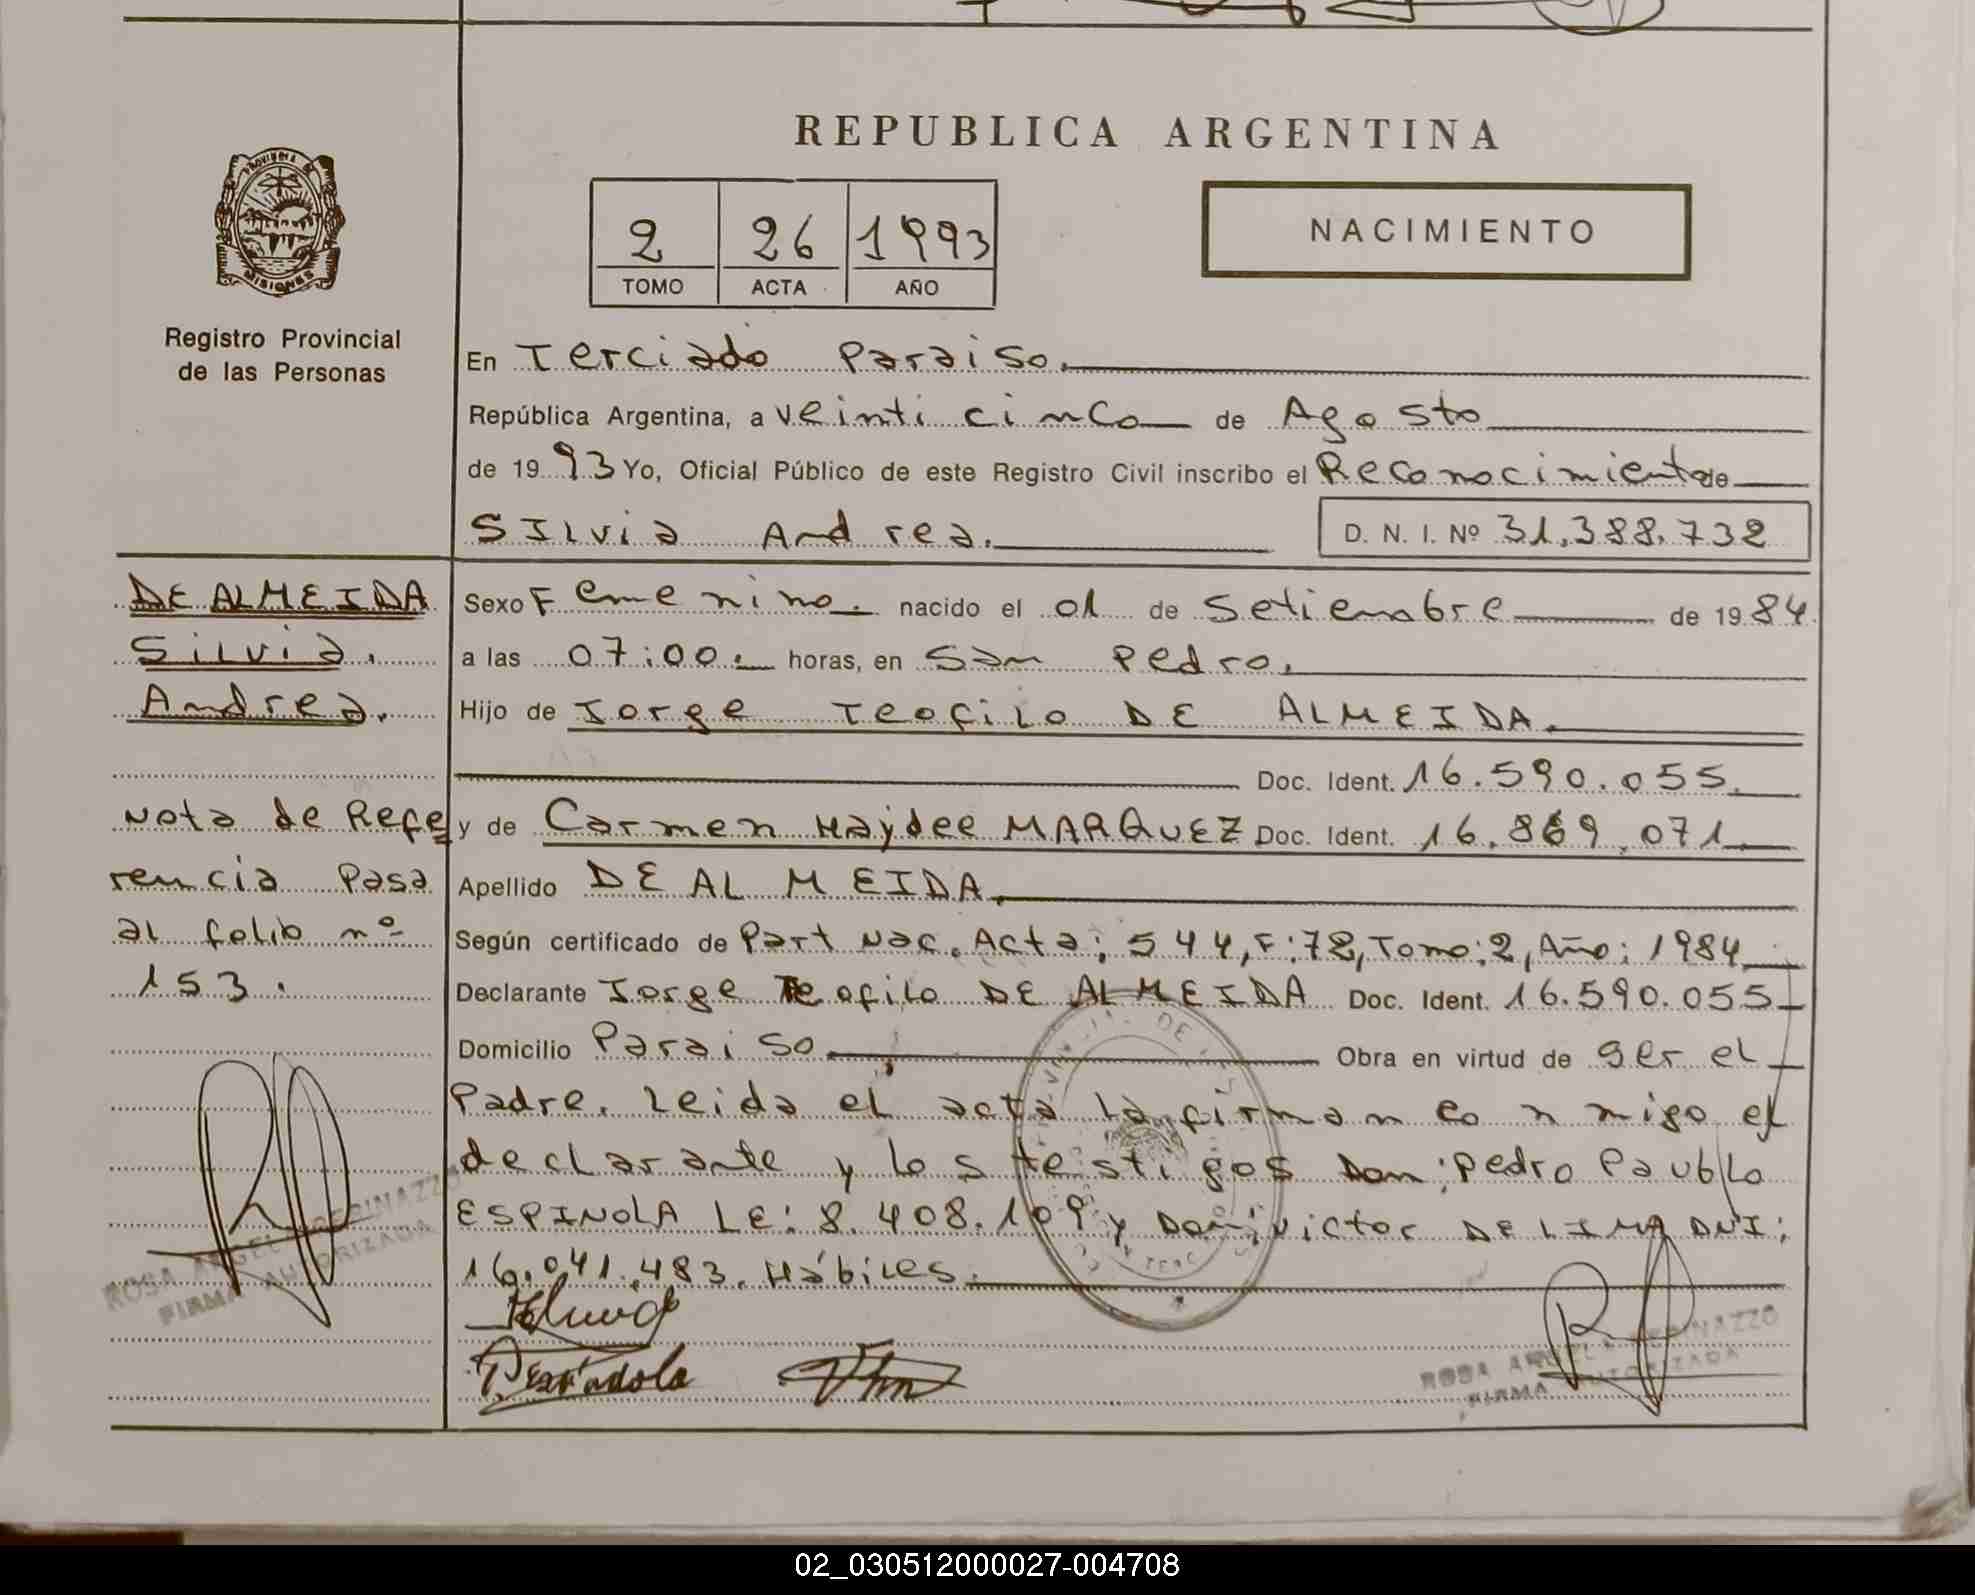 REPUBLICA ARGENTINA
PROVINCIA DE
MISIONES
Registro Provincial
de las Personas
2 26 1993
TOMO ACTA AÑO
NACIMIENTO
En Terciado Paraiso.
República Argentina, a veinti cinco de Agosto
de 1993 Yo, Oficial Público de este Registro Civil inscribo el Reconocimiento de
SILvia Andrea. D. N. I. Nº 31.388.732
DE ALMEIDA
Silvia.
Andrea.
Sexo Femenino. nacido el 01 de Setiembre de 1984
a las 07:00. horas, en San Pedro.
Hijo de Jorge Teofilo DE ALMEIDA.
Doc. Ident. 16.590.055.
y de Carmen Haydee MARQUEZ Doc. Ident. 16.869.071
Apellido DE ALMEIDA.
Según certificado de Part Nac. Acta: 544, F:72, Tomo:2, Año: 1984
Declarante Jorge Teofilo DE ALMEIDA Doc. Ident. 16.590.055
Domicilio Paraiso Obra en virtud de ser el
Padre. Leida el acta la firman conmigo el
declarante y los testigos Don: Pedro Paublo
ESPINOLA LE: 8.408.109 y Don: victor DE LIMA DNI:
16.041.483. Hábiles.
Nota de Refe
rencia Pasa
al folio nº
153.
ROSA ANGELA
FIRMA AUTORIZADA
ROSA ANGELA
FIRMA AUTORIZADA
02_030512000027-004708